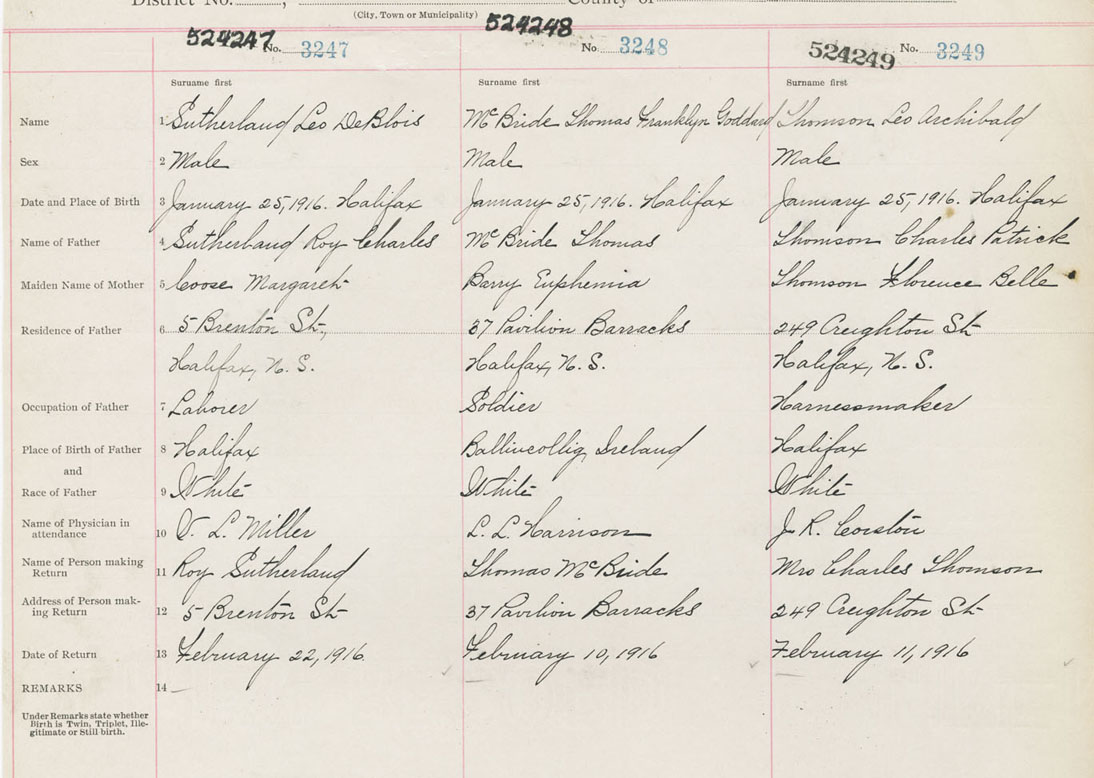 District No. , County of
(City, Town or Municipality)
524247 No. 3247 524248 No. 3248 524249 No. 3249
Surname first Surname first Surname first
Name 1 Sutherland Leo DeBlois McBride Thomas Franklyn Goddard Thomson Leo Archibald
Sex 2 Male Male Male
Date and Place of Birth 3 January 25, 1916. Halifax January 25, 1916. Halifax January 25, 1916. Halifax
Name of Father 4 Sutherland Roy Charles McBride Thomas Thomson Charles Patrick
Maiden Name of Mother 5 Coose Margaret Barry Euphemia Thomson Florence Belle
Residence of Father 6 5 Brenton St., 37 Pavilion Barracks 249 Creighton St
Halifax, N. S. Halifax, N. S. Halifax, N. S.
Occupation of Father 7 Laborer Soldier Harnessmaker
Place of Birth of Father 8 Halifax Ballincollig, Ireland Halifax
and
Race of Father 9 White White White
Name of Physician in
attendance 10 V. L. Miller L. L. Harrison J. R. Corston
Name of Person making
Return 11 Roy Sutherland Thomas McBride Mrs Charles Thomson
Address of Person mak-
ing Return 12 5 Brenton St 37 Pavilion Barracks 249 Creighton St
Date of Return 13 February 22, 1916 February 10, 1916 February 11, 1916
REMARKS 14
Under Remarks state whether
Birth is Twin, Triplet, Ille-
gitimate or Still birth.